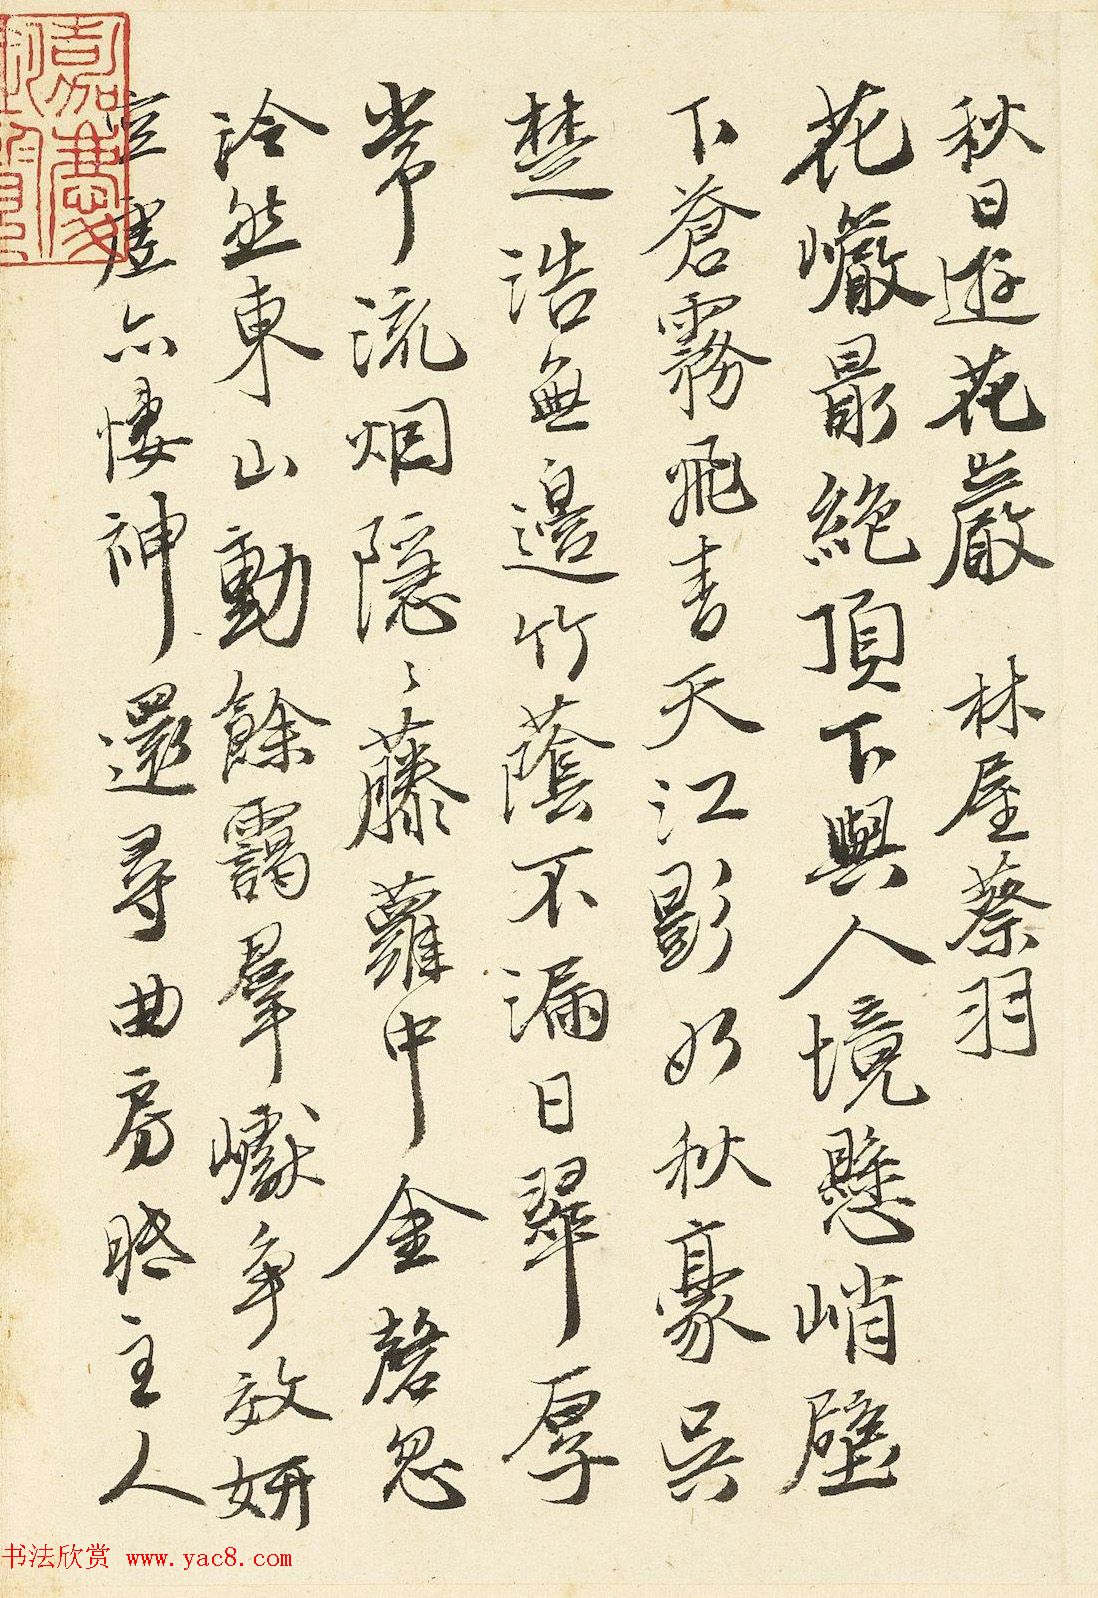 秋日遊花巖 林屋蔡羽
花巖最絕頂下與人境懸峭壁
下蒼霧飛書天江影如秋豪吳
楚浩無邊竹蔭不漏日翠厚
常流烟隱〻藤蘿中金磬忽
泠然東山動餘靄羣巘爭效妍
虛亦悽神還尋曲房眺主人
嘉慶
书法欣赏 www.yac8.com